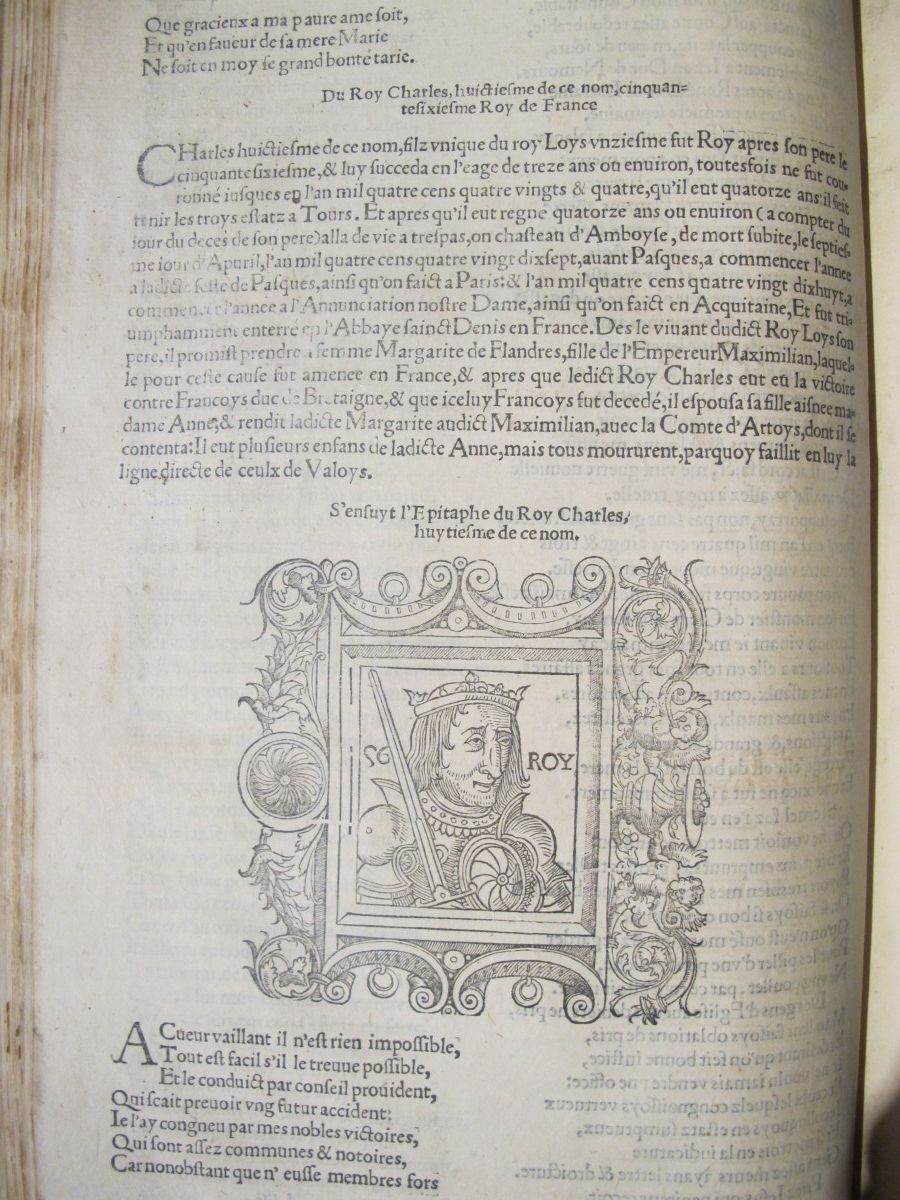 Que gracieux a ma paure ame soit,
Et qu'en faueur de sa mere Marie
Ne soit en moy se grand bonté tarie.
Du Roy Charles, huictiesme de ce nom, cinquan-
tesixiesme Roy de France
CHarles huictiesme de ce nom, filz vnique du roy Loys vnziesme fut Roy apres son pere le
cinquante sixiesme, & luy succeda en l'eage de treze ans ou enuiron, toutesfois ne fut cou-
ronné iusques en l'an mil quatre cens quatre vingts & quatre, qu'il eut quatorze ans: il feit
tenir les troys estatz a Tours. Et apres qu'il eut regne quatorze ans ou enuiron (a compter du
iour du deces de son pere) alla de vie a trespas, on chasteau d'Amboyse, de mort subite, le septies-
me iour d'Apuril, l'an mil quatre cens quatre vingt dixsept, auant Pasques, a commencer l'annee
a ladicte feste de Pasques, ainsi qu'on faict a Paris: & l'an mil quatre cens quatre vingt dixhuyt, a
commencer l'annee a l'Annunciation nostre Dame, ainsi qu'on faict en Acquitaine, Et fut tri-
umphamment enterre en l'Abbaye sainct Denis en France. Des le viuant dudict Roy Loys son
pere, il promist prendre a femme Margarite de Flandres, fille de l'Empereur Maximilian, laquel-
le pour ceste cause fut amenee en France, & apres que ledict Roy Charles eut eu la victoire
contre Francoys duc de Bretaigne, & que iceluy Francoys fut decedé, il espousa sa fille aisnee ma-
dame Anne, & rendit ladicte Margarite audict Maximilian, auec la Comte d'Artoys, dont il se
contenta: Il eut plusieurs enfans de ladicte Anne, mais tous moururent, parquoy faillit en luy la
ligne directe de ceulx de Valoys.
S'ensuyt l'Epitaphe du Roy Charles,
huytiesme de ce nom.
56 ROY
A Cueur vaillant il n'est rien impossible,
Tout est facil s'il le treuue possible,
Et le conduict par conseil prouident,
Qui scait preuoir vng futur accident:
Ie l'ay congneu par mes nobles victoires,
Qui sont assez communes & notoires,
Car nonobstant que n'eusse membres fors